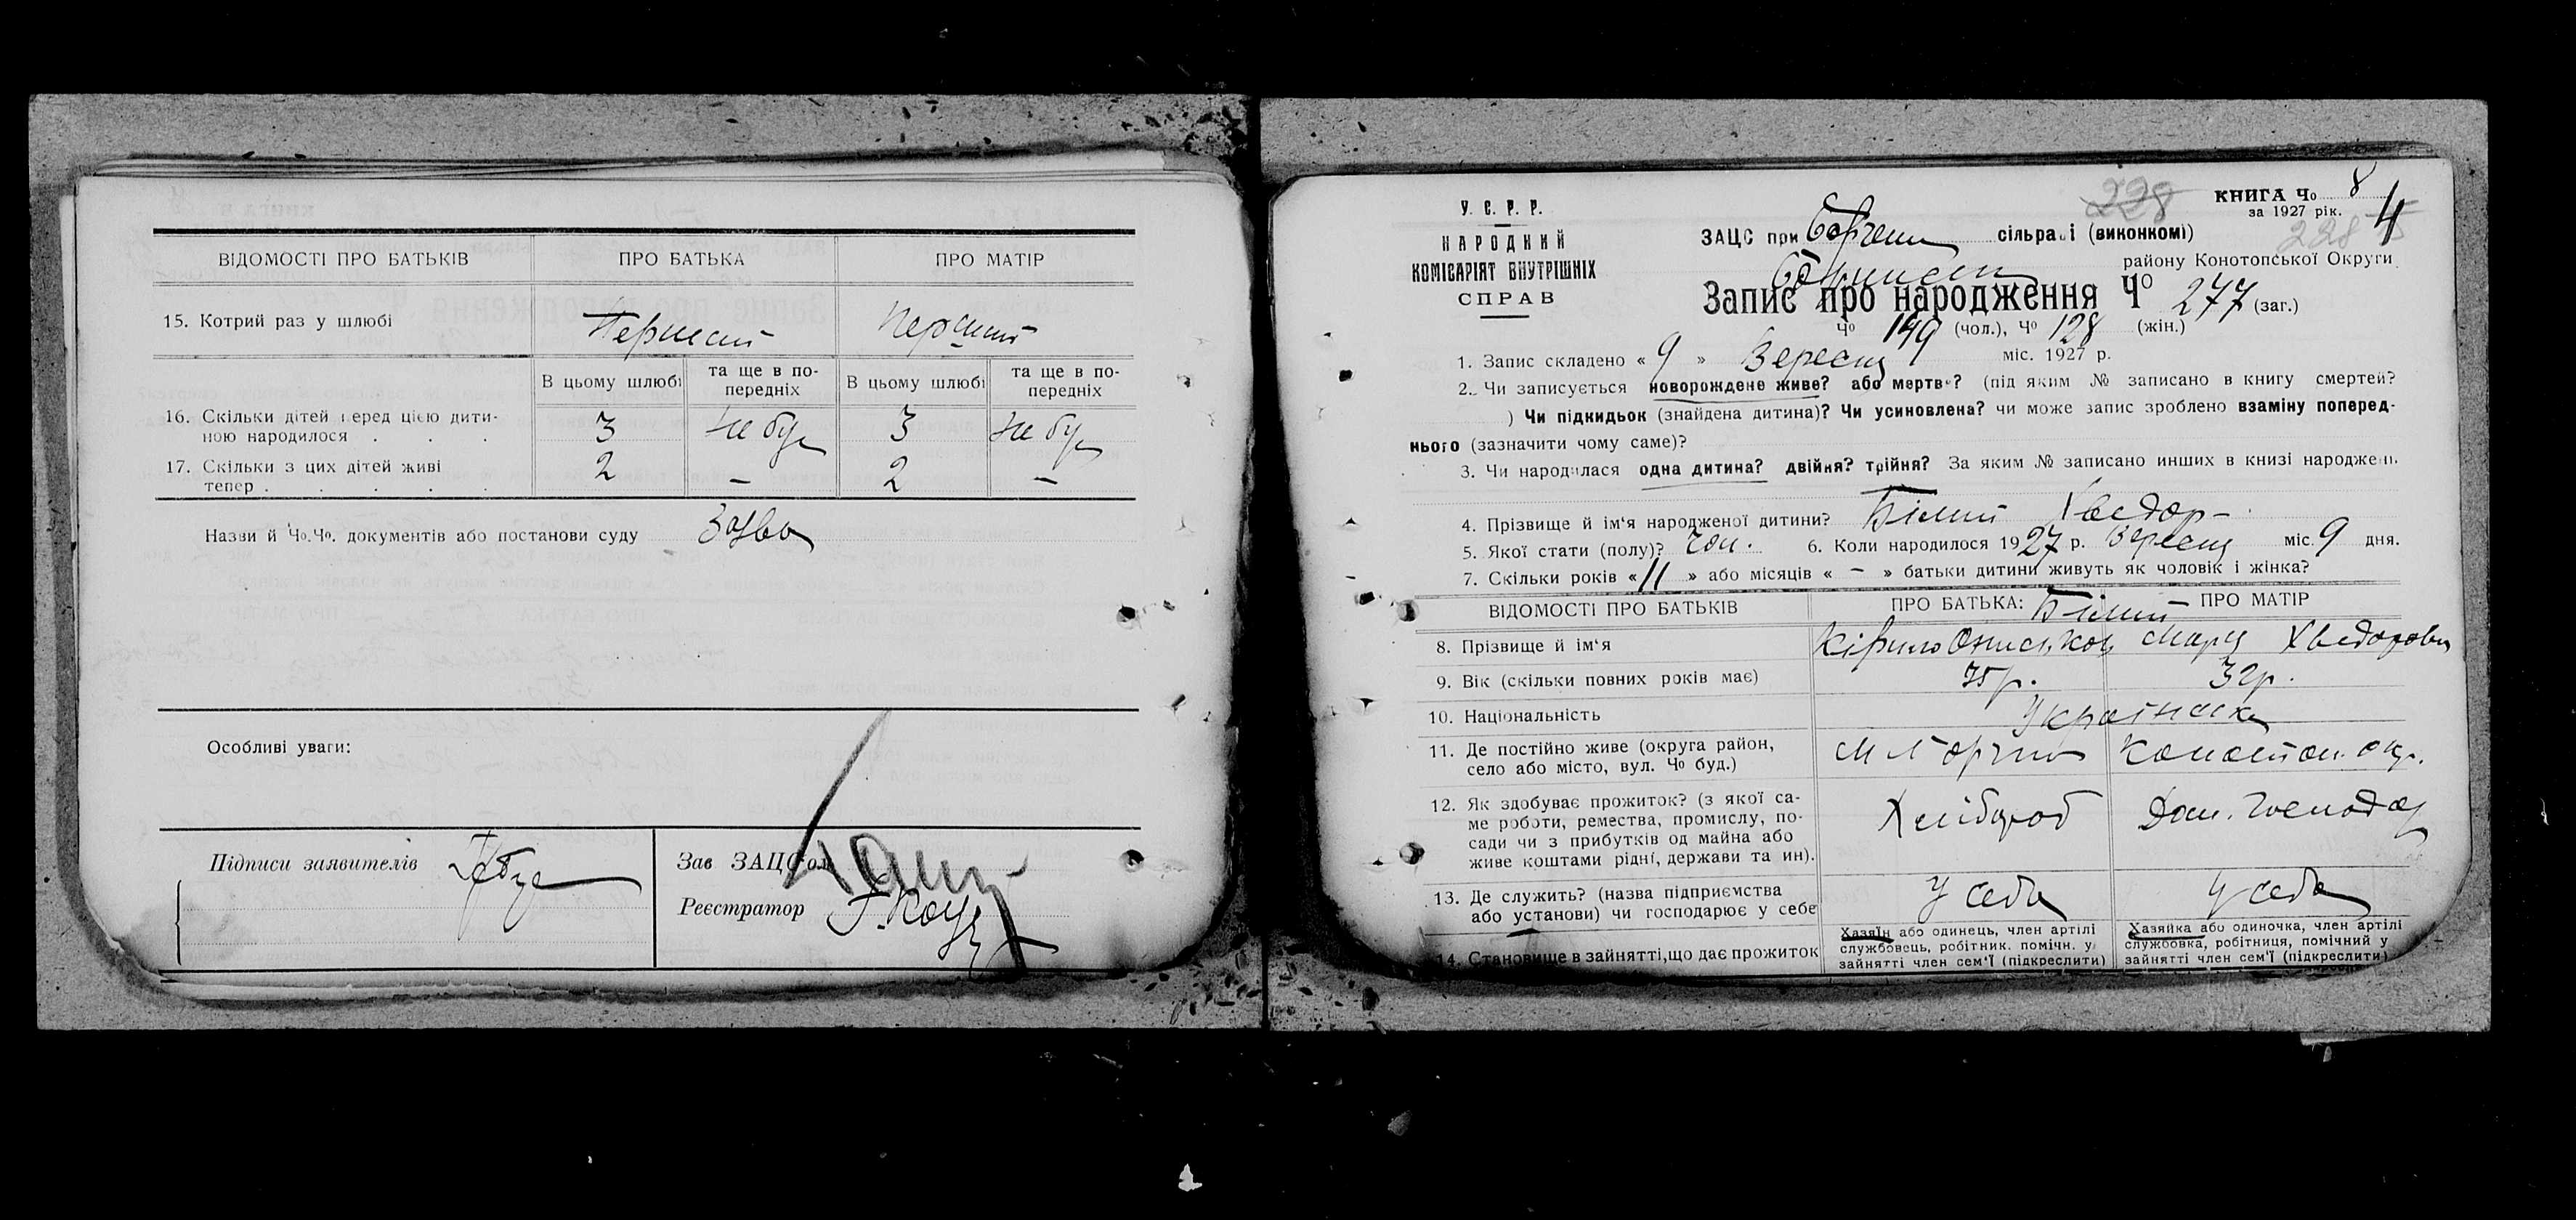 ВІДОМОСТІ ПРО БАТЬКІВ ПРО БАТЬКА ПРО МАТІР
15. Котрий раз у шлюбі Первший Первший
В цьому шлюбі та ще в по-передніх В цьому шлюбі та ще в по-передніх
16. Скільки дітей перед цією дити-
ною народилося . . . 3 не бул 3 не бул
17. Скільки з цих дітей живі
тепер . . . . . 2 — 2 —
Назви й Чо.Чо. документів або постанови суду Заява
Особливі уваги:
Підписи заявителів
Зав ЗАЦС'ом
Реєстратор
У. С. Р. Р.
НАРОДНИЙ
КОМІСАРІЯТ ВНУТРІШНІХ
СПРАВ
228
КНИГА Чо 8
за 1927 рік. 4
228
ЗАЦС при сільраді (виконкомі)
району Конотопської Округи
Запис про народження Чо 277 (заг.)
Чо 149 (чол.), Чо 128 (жін.)
1. Запис складено « 9 » Вересня міс. 1927 р.
2. Чи записується новорождене живе? або мертве? (під яким № записано в книгу смертей?
) Чи підкидьок (знайдена дитина)? Чи усиновлена? чи може запис зроблено взаміну поперед-
нього (зазначити чому саме)?
3. Чи народилася одна дитина? двійня? трійня? За яким № записано инших в книзі народжень.
4. Прізвище й ім'я народженої дитини? Білий Хведор -
5. Якої стати (полу)? чол. 6. Коли народилося 1927 р. Вересня міс. 9 дня.
7. Скільки років « 11 » або місяців « – » батьки дитини живуть як чоловік і жінка?
ВІДОМОСТІ ПРО БАТЬКІВ ПРО БАТЬКА: Білий ПРО МАТІР
8. Прізвище й ім'я Кірило Мария Хведоровн
9. Вік (скільки повних років має) 35р. 32р.
10. Національність Українська
11. Де постійно живе (округа район,
село або місто, вул. Чо буд.) Конотоп. окр.
12. Як здобуває прожиток? (з якої са-
ме роботи, ремества, промислу, по-
сади чи з прибутків од майна або
живе коштами рідні, держави та ин). Хлібороб Дом. Господар
13. Де служить? (назва підприємства
або установи) чи господарює у себе У себе у себе
14. Становище в зайнятті, що дає прожиток
Хазяїн або одинець, член артілі
службовець, робітник. помічн. у
зайнятті член сем'ї (підкреслити)
Хазяйка або одиночка, член артілі
службовка, робітниця, помічний у
зайнятті член сем'ї (підкреслити)